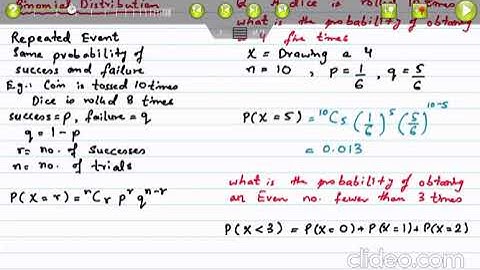 Binomial Distribution
Repeated Event
Same probability of
success and failure
Eg: Coin is tossed 10 times
Dice is rolled 8 times
success = p, failure = q
q = 1 - p
r = no. of successes
n = no. of trials
P(X = r) = ⁿCᵣ pʳ qⁿ⁻ʳ
dice is rolled 10 times
what is the probability of obtaining
a 4 five times
X = Drawing a 4
n = 10 , p = 1/6 , q = 5/6
P(X = 5) = ¹⁰C₅ (1/6)⁵ (5/6)¹⁰⁻⁵
= 0.013
what is the probability of obtaining
an Even no. fewer than 3 times
P(X < 3) = P(X = 0) + P(X = 1) + P(X = 2)
clideo.com